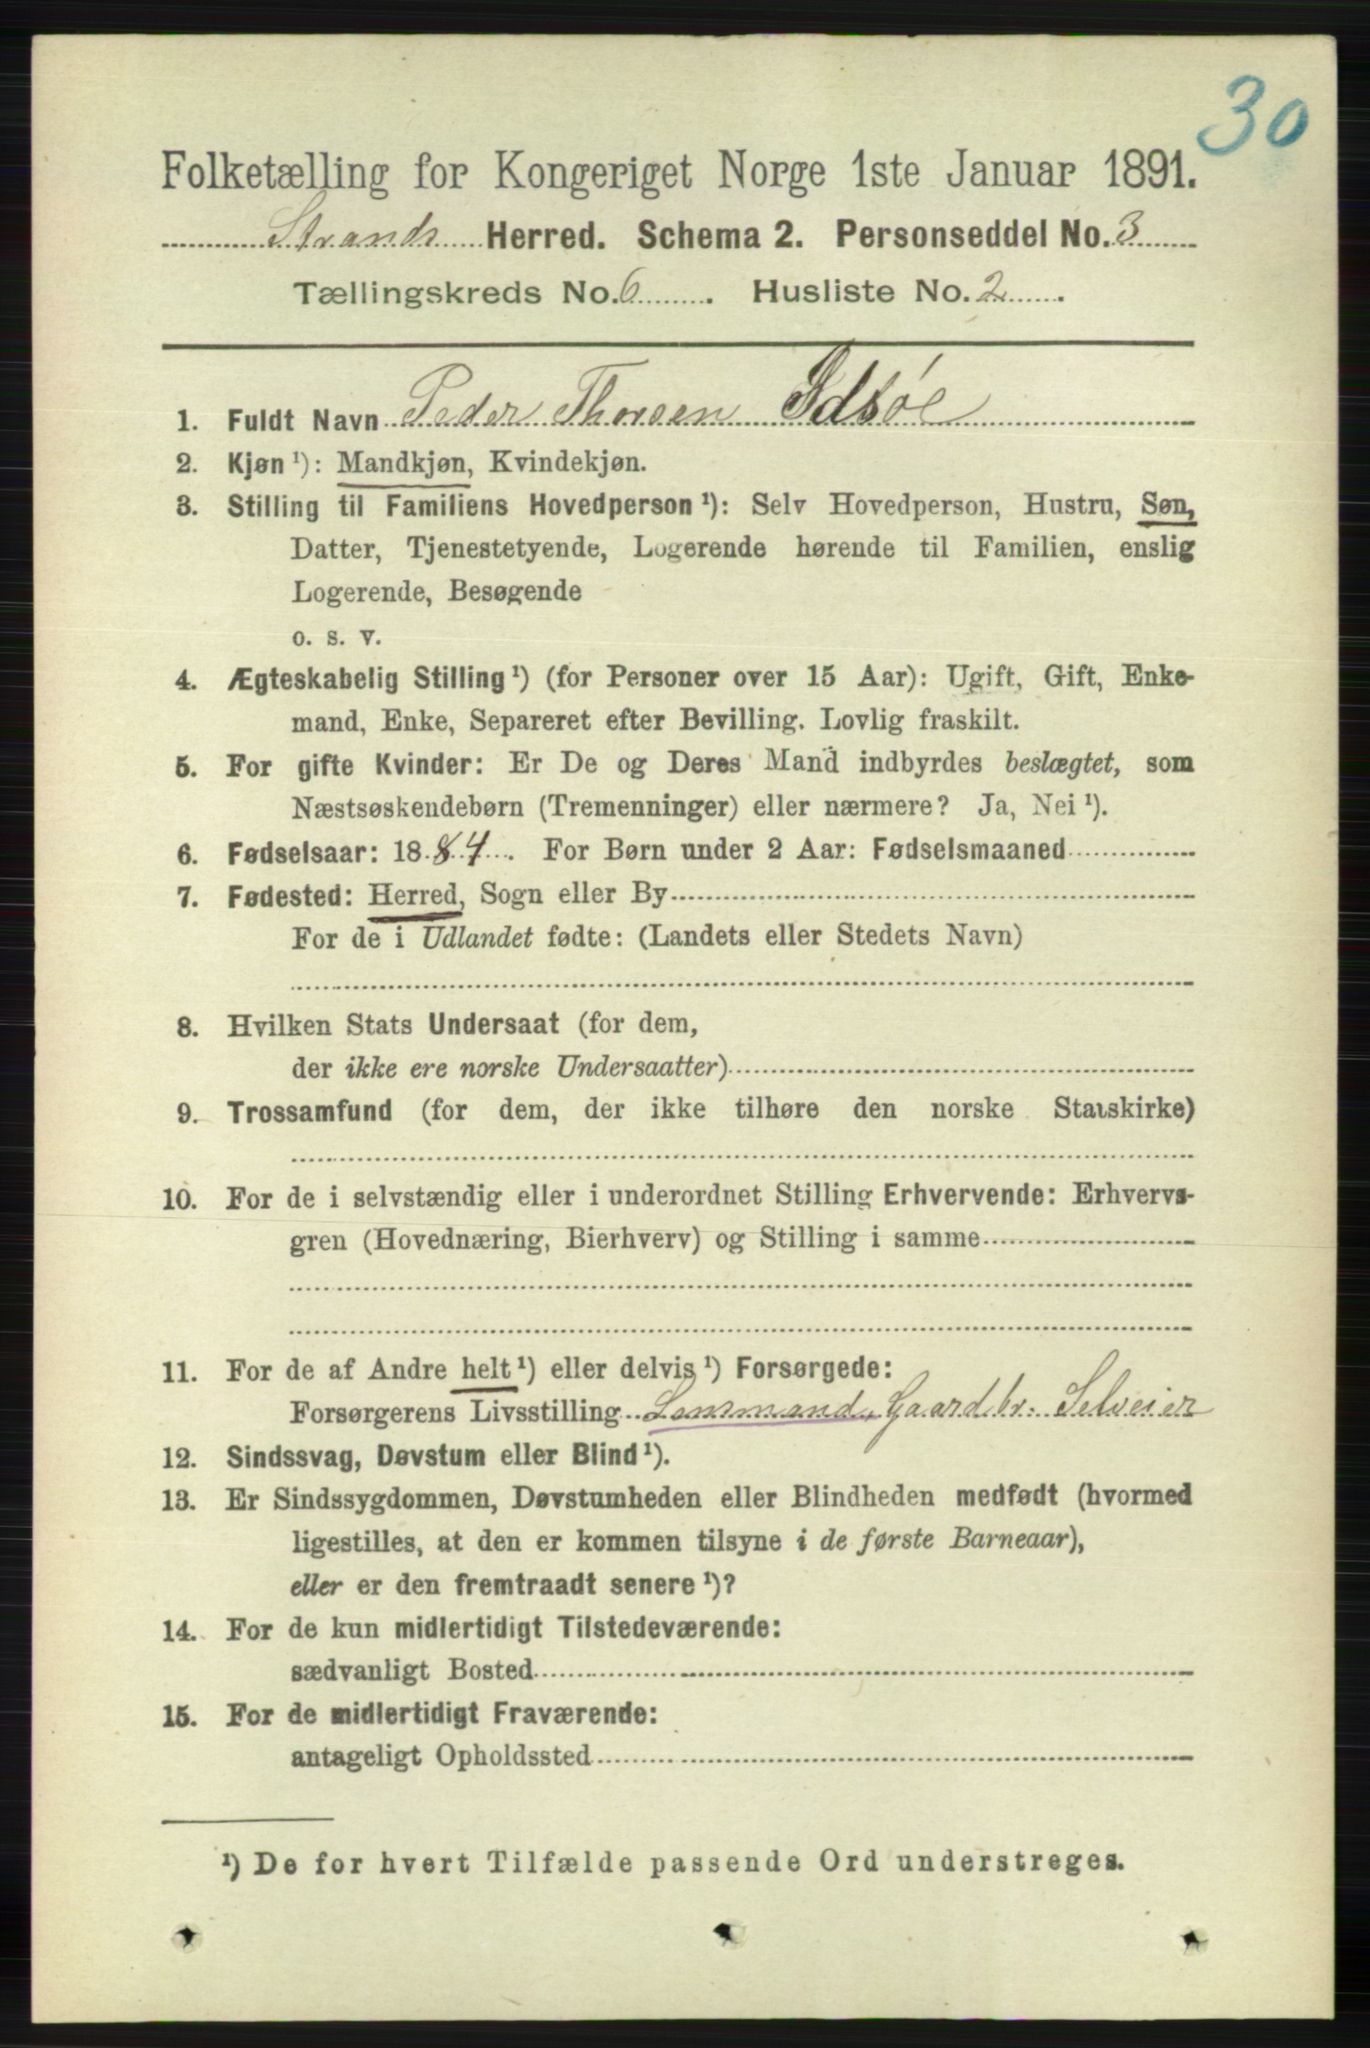 30
Folketælling for Kongeriget Norge 1ste Januar 1891.
Strands Herred. Schema 2. Personseddel No. 3
Tællingskreds No. 6. Husliste No. 2.
1. Fuldt Navn Peder Thorsen Idsøe
2. Kjøn ¹): Mandkjøn, Kvindekjøn.
3. Stilling til Familiens Hovedperson ¹): Selv Hovedperson, Hustru, Søn,
Datter, Tjenestetyende, Logerende hørende til Familien, enslig
Logerende, Besøgende
o. s. v.
4. Ægteskabelig Stilling ¹) (for Personer over 15 Aar): Ugift, Gift, Enke-
mand, Enke, Separeret efter Bevilling. Lovlig fraskilt.
5. For gifte Kvinder: Er De og Deres Mand indbyrdes beslægtet, som
Næstsøskendebørn (Tremenninger) eller nærmere? Ja, Nei ¹).
6. Fødselsaar: 1884. For Børn under 2 Aar: Fødselsmaaned
7. Fødested: Herred, Sogn eller By
For de i Udlandet fødte: (Landets eller Stedets Navn)
8. Hvilken Stats Undersaat (for dem,
der ikke ere norske Undersaatter)
9. Trossamfund (for dem, der ikke tilhøre den norske Statskirke)
10. For de i selvstændig eller i underordnet Stilling Erhvervende: Erhvervs-
gren (Hovednæring, Bierhverv) og Stilling i samme
11. For de af Andre helt ¹) eller delvis ¹) Forsørgede:
Forsørgerens Livsstilling Lensmand, Gaardbr. Selveier
12. Sindssvag, Døvstum eller Blind ¹).
13. Er Sindssygdommen, Døvstumheden eller Blindheden medfødt (hvormed
ligestilles, at den er kommen tilsyne i de første Barneaar),
eller er den fremtraadt senere ¹)?
14. For de kun midlertidigt Tilstedeværende:
sædvanligt Bosted
15. For de midlertidigt Fraværende:
antageligt Opholdssted
¹) De for hvert Tilfælde passende Ord understreges.